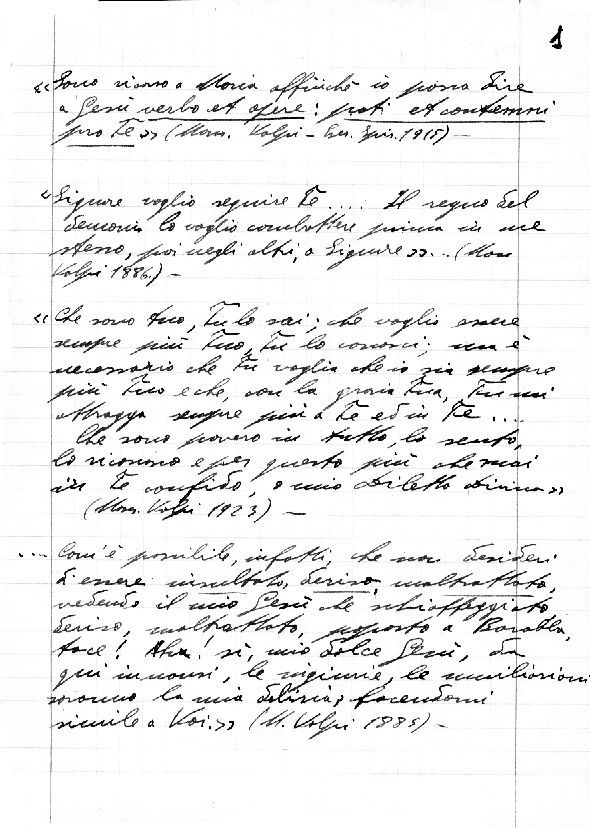 1
« Sono ricorso a Maria affinché io possa dire
a Gesù verbo et opere: pati et contemni
pro Te » (Mons. Volpi – Eser. Spir. 1915) –
« Signore voglio seguire Te .... Il regno del
demonio lo voglio combattere prima in me
stesso, poi negli altri, o Signore » ... (Mons
Volpi 1886.) –
« Che sono tuo, Tu lo sai; che voglio essere
sempre più Tuo, Tu lo conosci; ma è
necessario che Tu voglia che io sia sempre
più Tuo e che, con la grazia Tua, Tu mi
attragga sempre più a Te ed in Te ....
Che sono povero in tutto, lo sento,
lo riconosco e per questo più che mai
in Te confido, o mio Diletto Divino »
(Mons. Volpi 1923) –
... Com'è possibile, infatti, che non desideri
d'essere insultato, deriso, maltrattato,
vedendo il mio Gesù che schiaffeggiato
deriso, maltrattato, posposto a Barabba,
tace! Ah! sì, mio dolce Gesù, da
qui innanzi, le ingiurie, le umiliazioni
saranno la mia delizia, facendomi
simile a Voi. » (M. Volpi 1885) –